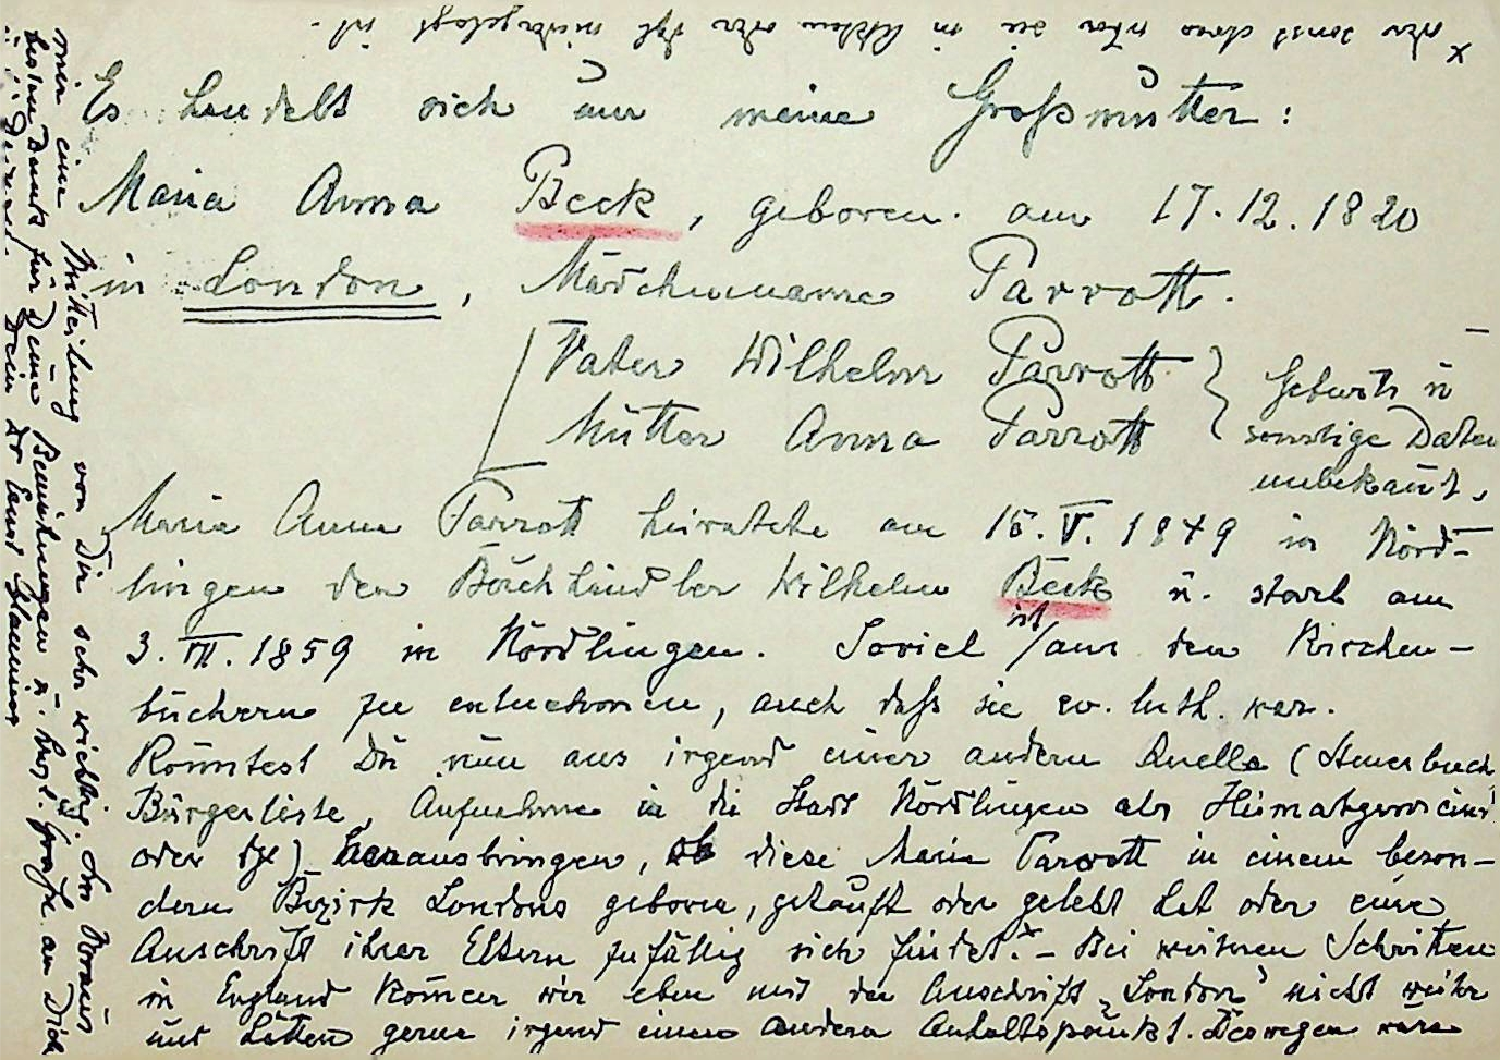 Es handelt sich um meine Großmutter:
Maria Anna Beck, geboren am 17.12.1820
in London, Mädchenname Parrott.
Vater Wilhelm Parrott
Mutter Anna Parrott
Geburts u
sonstige Daten
unbekannt.
Maria Anna Parrott heiratete am 15.V.1849 in Nörd-
lingen den Buchhändler Wilhelm Beck u. starb am
3. VII. 1859 in Nördlingen. Soviel ist aus den Kirchen-
büchern zu entnehmen, auch daß sie ev. luth. war.
Könntest Du nun aus irgend einer andern Quelle (Steuerbuch
Bürgerliste, Aufnahme in die Stadt Nördlingen als
oder dgl) herausbringen, ob diese Maria Parrott in einem beson-
dern Bezirk Londons geboren, getauft oder gelebt hat oder eine
Anschrift ihrer Eltern zufällig sich findet.x – Bei weiteren Schritten
in England können wir eben mit der Anschrift „London" nicht weiter
und hätten gerne irgend einen andern Anhaltspunkt. Deswegen wäre
mir eine Mitteilung von Dir sehr wichtig. Im Voraus
besten Dank für Deine Bemühungen u. herzl. Grüße an Dich
Dein Dr Ernst
x oder sonst etwas über sie in Akten oder dgl niedergelegt ist.